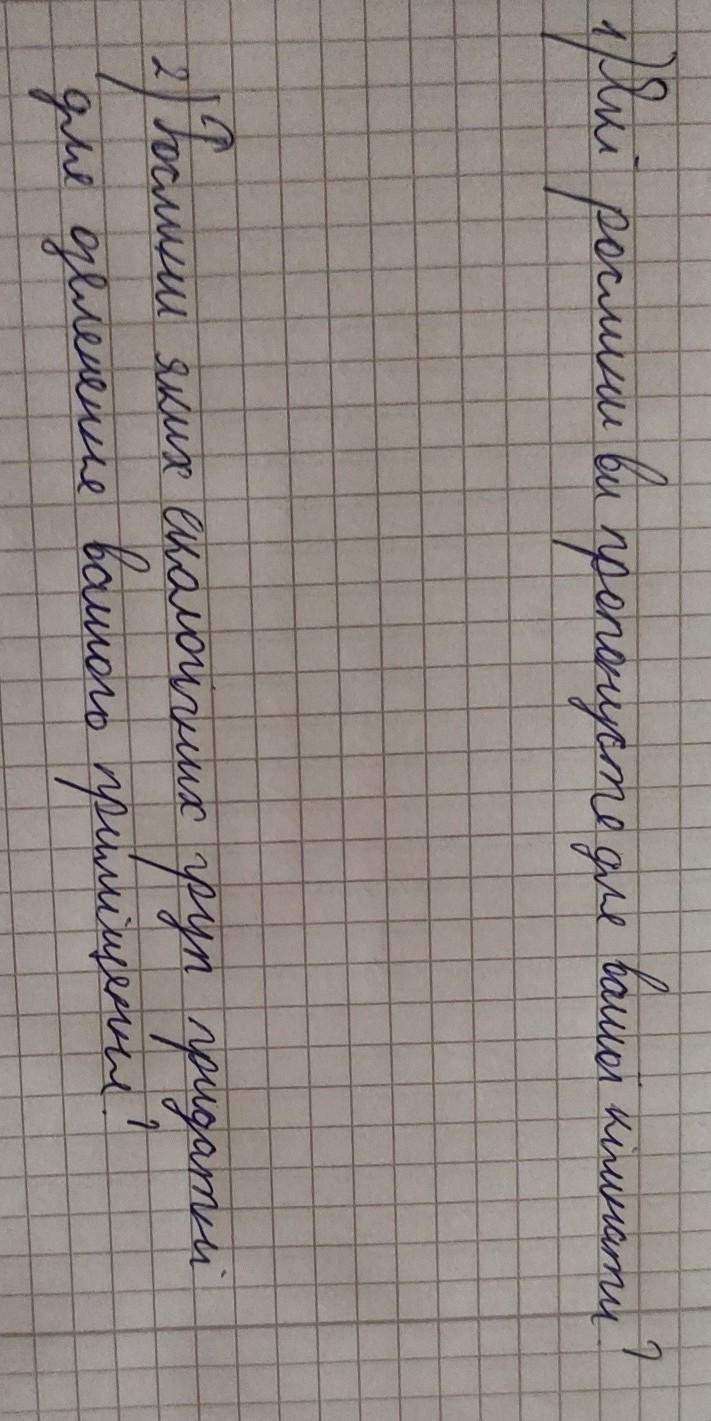 1) Які рослини ви пропонуєте для вашої кімнати?
2) Рослини яких екологічних груп придатні
для озеленення вашого приміщення?